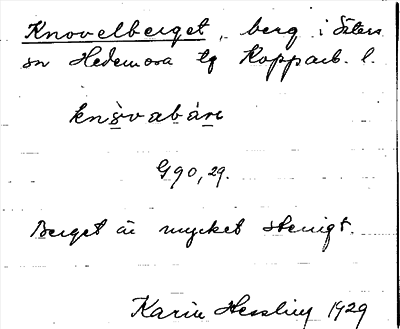 Knovelberget, berg i Säters
sn Hedemora tg Kopparb. l.
knòvabárı
G 90, 29.
Berget är mycket stenigt.
Karin Hessling 1929